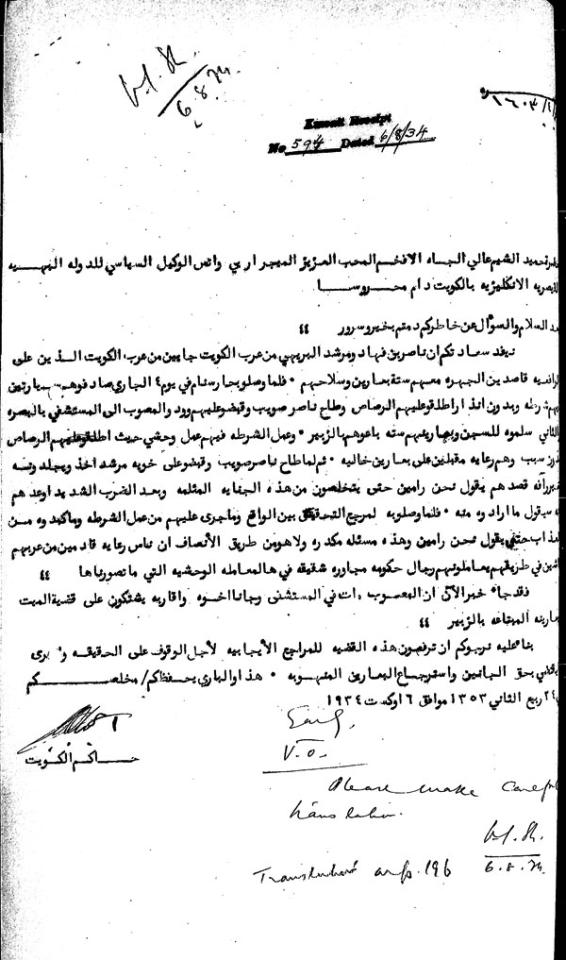 6.8.34
Kuwait Receipt
No 594 Dated 6/8/34
حميد الشيم عالي الجاه الافخم المحب العزيز الميجر ار بي واتس الوكيل السياسي للدوله البهيه
القيصريه الانكليزيه بالكويت دام محروسا
بعد السلام والسؤال عن خاطركم دمتم بخير وسرور "
نفيد سعادتكم ان ناصر بن فهاد ومرشد البريهي من عرب الكويت جايين من عرب الكويت الذين على
قاصدين الجهره معهم ستة بعارين وسلاحهم • فلما وصلوا بحار سنام في يوم ٤ الجاري صادفوهم سيارتين
بهم شرطه وبدون انذار اطلقو عليهم الرصاص وطاح ناصر صويب وقبضو عليهم وودو المصوب الى المستشفي بالبصره
الثاني سلموه للسجن وبعارينهم سته باعوهم بالزبير • وعمل الشرطه فيهم عمل وحشي حيث اطلقو عليهم الرصاص
بدون سبب وهم رعايه مقبلين على بعارين خاليه • ثم لما طاح ناصر صويب وقبضو على خويه مرشد اخذ ويجلدونه
قصدهم يقول نحن رامين حتى يتخلصون من هذه الجنايه المثلمه وبعد الضرب الشديد اوعدهم
يقول ما ارادوه منه • فلما وصلو به لمرجع التحقيق بين الواقع وماجرى عليهم من عمل الشرطه وماكبدوه من
عذاب حتى يقول نحن رامين وهذه مسئله مكدره ولاهو من طريق الأنصاف ان ناس رعايه قادمين من عربهم
الذين في طريقهم يعاملونهم رجال حكومه مجاوره شقيقه في هالمعامله الوحشيه التي ماتصورناها "
فقد جاء خبر الآن ان المصوب مات في المستشفى وجانا اخوه واقاربه يشتكون على قضية الميت
وبعارينه المباعه بالزبير "
بناً عليه نرجوكم ان ترفعون هذه القضيه للمراجع الأيجابيه لأجل الوقوف على الحقيقه و يرى
مايقتضي بحق الجانين واسترجاع البعارين المنهوبه • هذا والباري يحفظكم / مخلصكم
٢٤ ربيع الثاني ١٣٥٣ موافق ٦ اوكست ١٩٣٤
حاكم الكويت
V.O.
Please make careful
translation.
6.8.34
Translated on p. 196